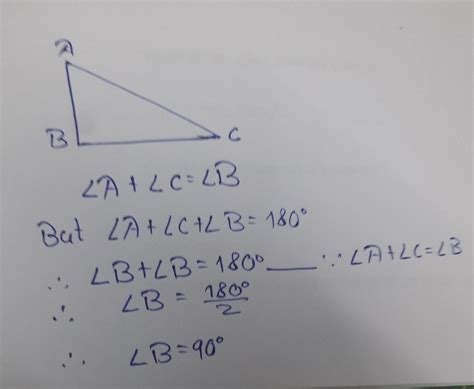 A
B C
∠A + ∠C = ∠B
But ∠A + ∠C + ∠B = 180°
∴ ∠B + ∠B = 180° ___ ∵ ∠A + ∠C = ∠B
∴ ∠B = 180°/2
∴ ∠B = 90°